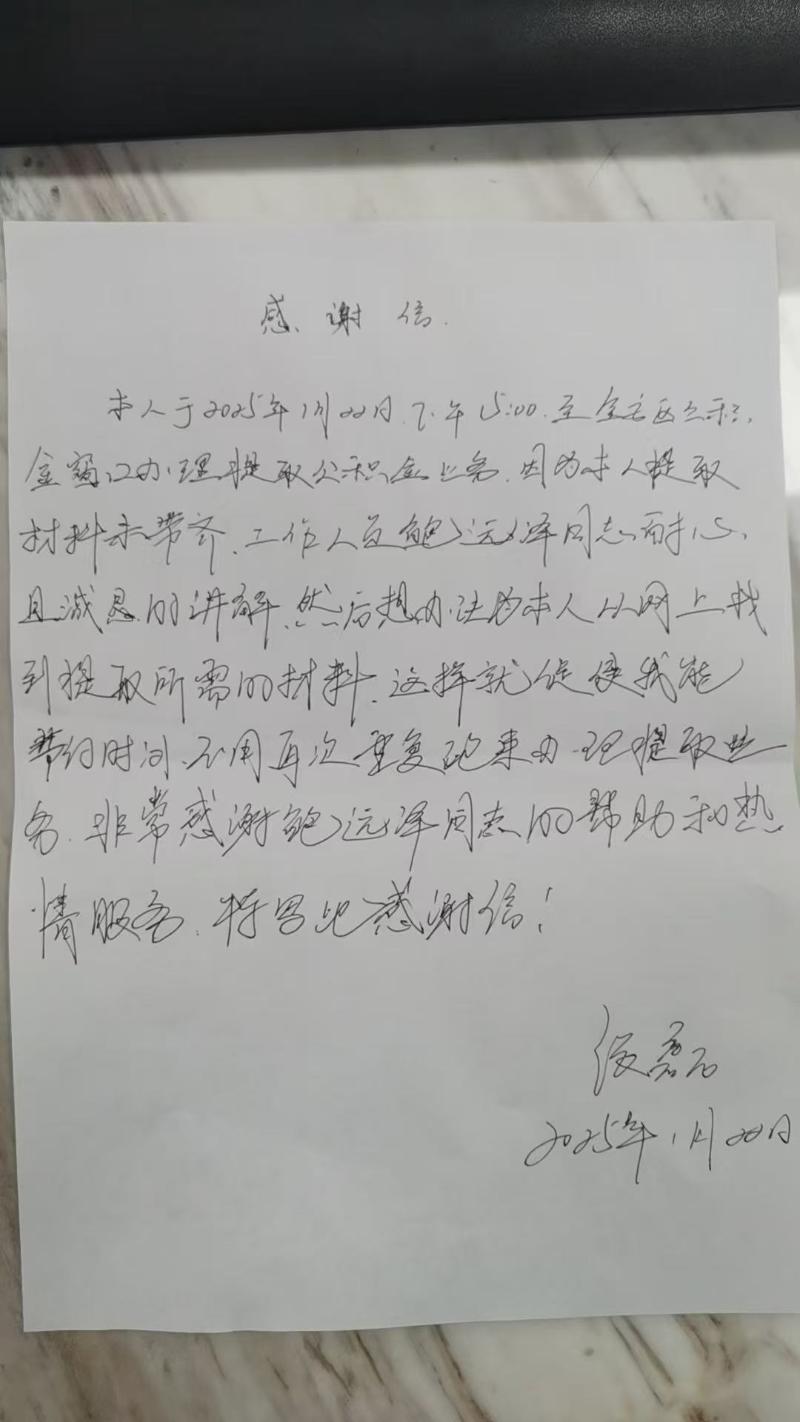 感谢信
本人于2025年1月22日下午15:00至金安区公积
金窗口办理提取公积金业务,因为本人提取
材料未带齐,工作人员鲍远泽同志耐心
且诚恳的讲解,然后想办法为本人从网上找
到提取所需的材料,这样就促使我能
节约时间,不用再次重复跑来办理提取业
务,非常感谢鲍远泽同志的帮助和热
情服务,特写此感谢信!
磊
2025年1月22日